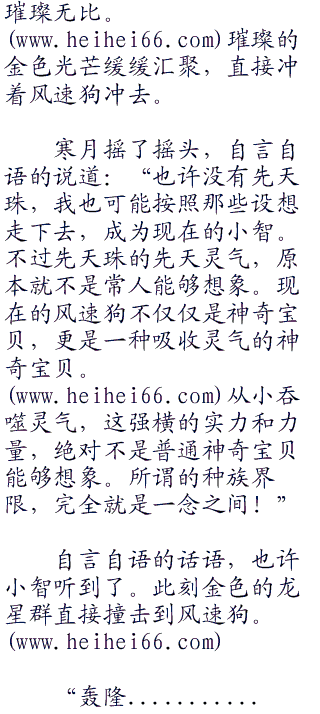 璀璨无比。
(www.heihei66.com)璀璨的
金色光芒缓缓汇聚，直接冲
着风速狗冲去。
寒月摇了摇头，自言自
语的说道：“也许没有先天
珠，我也可能按照那些设想
走下去，成为现在的小智。
不过先天珠的先天灵气，原
本就不是常人能够想象。现
在的风速狗不仅仅是神奇宝
贝，更是一种吸收灵气的神
奇宝贝。
(www.heihei66.com)从小吞
噬灵气，这强横的实力和力
量，绝对不是普通神奇宝贝
能够想象。所谓的种族界
限，完全就是一念之间！”
自言自语的话语，也许
小智听到了。此刻金色的龙
星群直接撞击到风速狗。
(www.heihei66.com)
“轰隆...........